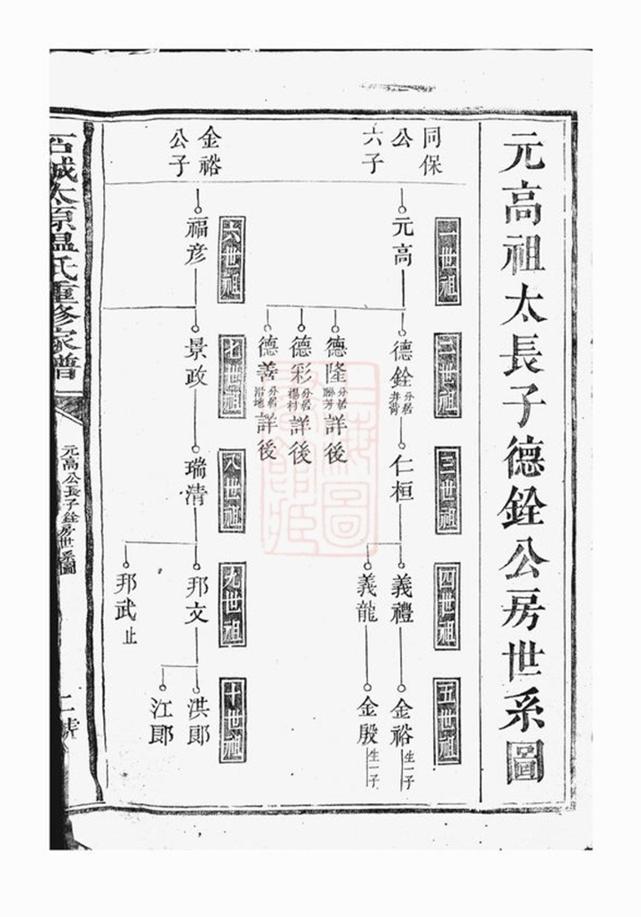 元高祖太長子德銓公房世系圖
一世祖
二世祖
三世祖
四世祖
五世祖
同保公六子
元高
德銓 分居井背
仁桓
義禮
金裕 生一子
義龍
金殷 生一子
德隆 分居 詳後
德彩 分居楊村 詳後
德善 分居 詳後
六世祖
七世祖
八世祖
九世祖
十世祖
金裕公子
福彦
景政
瑞清
邦文
洪郎
江郎
邦武 止
石城太原溫氏重修家譜
元高公長子銓房世系圖